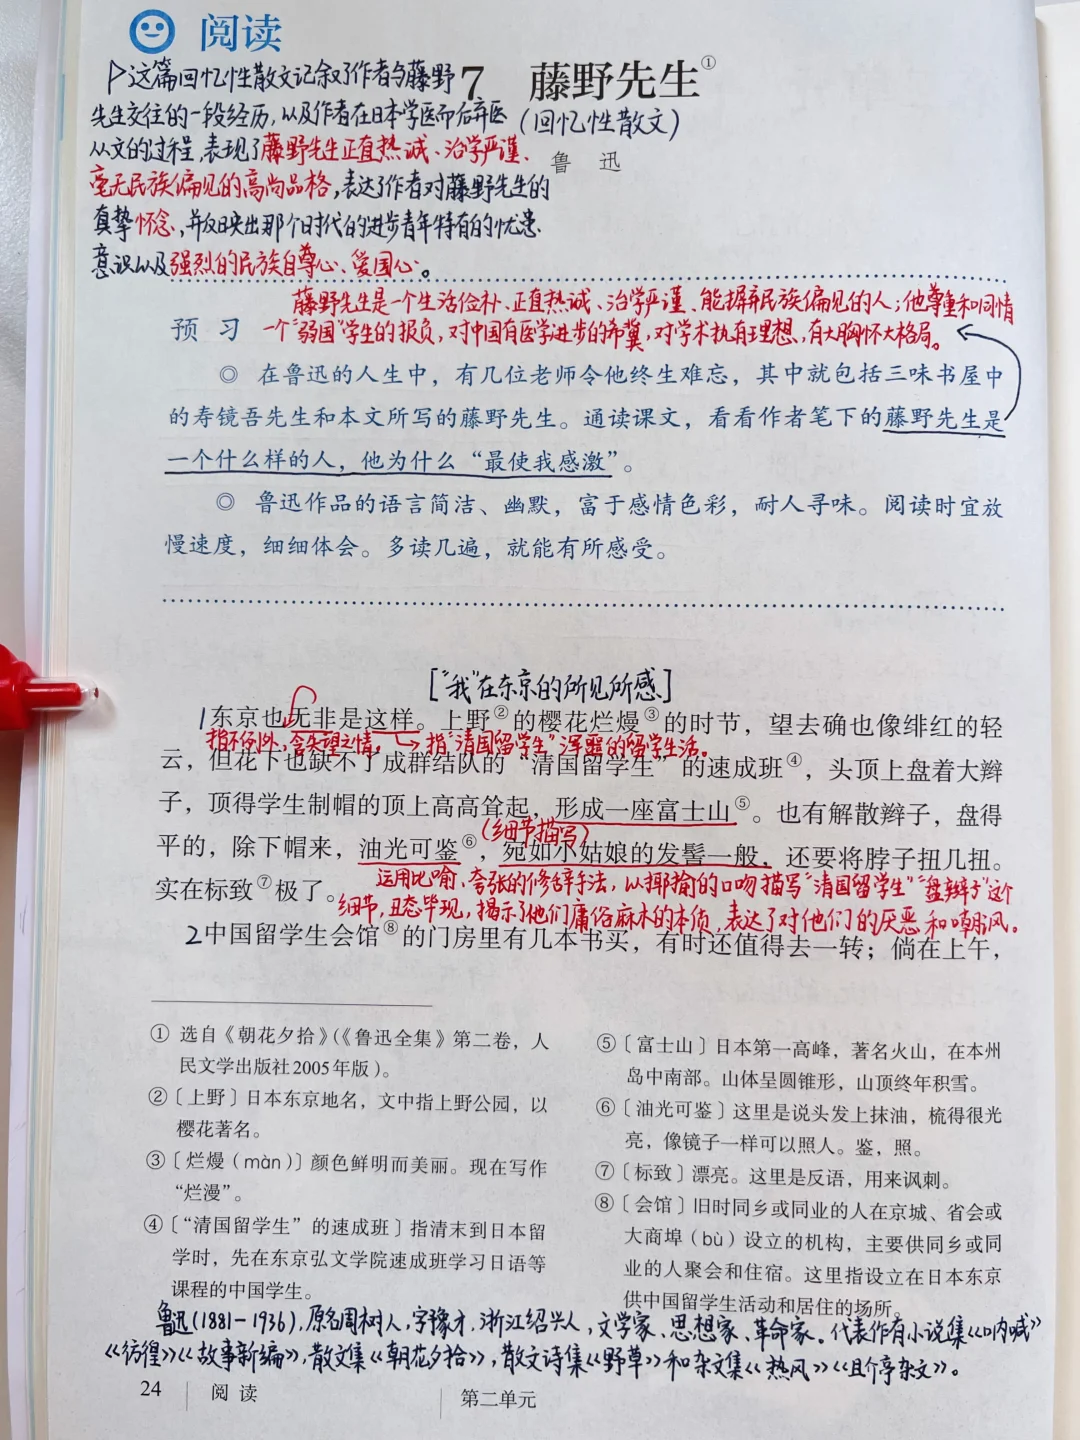 阅读
▷这篇回忆性散文记叙了作者与藤野
7 藤野先生①
先生交往的一段经历，以及作者在日本学医而后弃医
(回忆性散文)
从文的过程，表现了藤野先生正直热诚、治学严谨、
鲁 迅
毫无民族偏见的高尚品格，表达了作者对藤野先生的
真挚怀念，并反映出那个时代的进步青年特有的忧患
意识以及强烈的民族自尊心、爱国心。
藤野先生是一个生活俭朴、正直热诚、治学严谨、能摒弃民族偏见的人；他尊重和同情
预 习
一个“弱国”学生的报负，对中国有医学进步的希冀，对学术执有理想，有大胸怀大格局。
◎ 在鲁迅的人生中，有几位老师令他终生难忘，其中就包括三味书屋中
的寿镜吾先生和本文所写的藤野先生。通读课文，看看作者笔下的藤野先生是
一个什么样的人，他为什么“最使我感激”。
◎ 鲁迅作品的语言简洁、幽默，富于感情色彩，耐人寻味。阅读时宜放
慢速度，细细体会。多读几遍，就能有所感受。
[“我”在东京的所见所感]
1东京也无非是这样。上野②的樱花烂熳③的时节，望去确也像绯红的轻
指不例外，含失望之情。 指“清国留学生”浑噩的留学生活。
云，但花下也缺不了成群结队的“清国留学生”的速成班④，头顶上盘着大辫
子，顶得学生制帽的顶上高高耸起，形成一座富士山⑤。也有解散辫子，盘得
(细节描写)
平的，除下帽来，油光可鉴⑥，宛如小姑娘的发髻一般，还要将脖子扭几扭。
运用比喻、夸张的修辞手法，以揶揄的口吻描写“清国留学生”“盘辫子”这个
实在标致⑦极了。
细节，丑态毕现，揭示了他们庸俗麻木的本质，表达了对他们的厌恶和嘲讽。
2中国留学生会馆⑧的门房里有几本书买，有时还值得去一转；倘在上午，
① 选自《朝花夕拾》（《鲁迅全集》第二卷，人
民文学出版社2005年版）。
②〔上野〕日本东京地名，文中指上野公园，以
樱花著名。
③〔烂熳（màn）〕颜色鲜明而美丽。现在写作
“烂漫”。
④〔“清国留学生”的速成班〕指清末到日本留
学时，先在东京弘文学院速成班学习日语等
课程的中国学生。
⑤〔富士山〕日本第一高峰，著名火山，在本州
岛中南部。山体呈圆锥形，山顶终年积雪。
⑥〔油光可鉴〕这里是说头发上抹油，梳得很光
亮，像镜子一样可以照人。鉴，照。
⑦〔标致〕漂亮。这里是反语，用来讽刺。
⑧〔会馆〕旧时同乡或同业的人在京城、省会或
大商埠（bù）设立的机构，主要供同乡或同
业的人聚会和住宿。这里指设立在日本东京
供中国留学生活动和居住的场所。
鲁迅(1881-1936)，原名周树人，字豫才，浙江绍兴人，文学家、思想家、革命家。代表作有小说集《呐喊》
《彷徨》《故事新编》，散文集《朝花夕拾》，散文诗集《野草》和杂文集《热风》《且介亭杂文》。
24 阅 读 第二单元